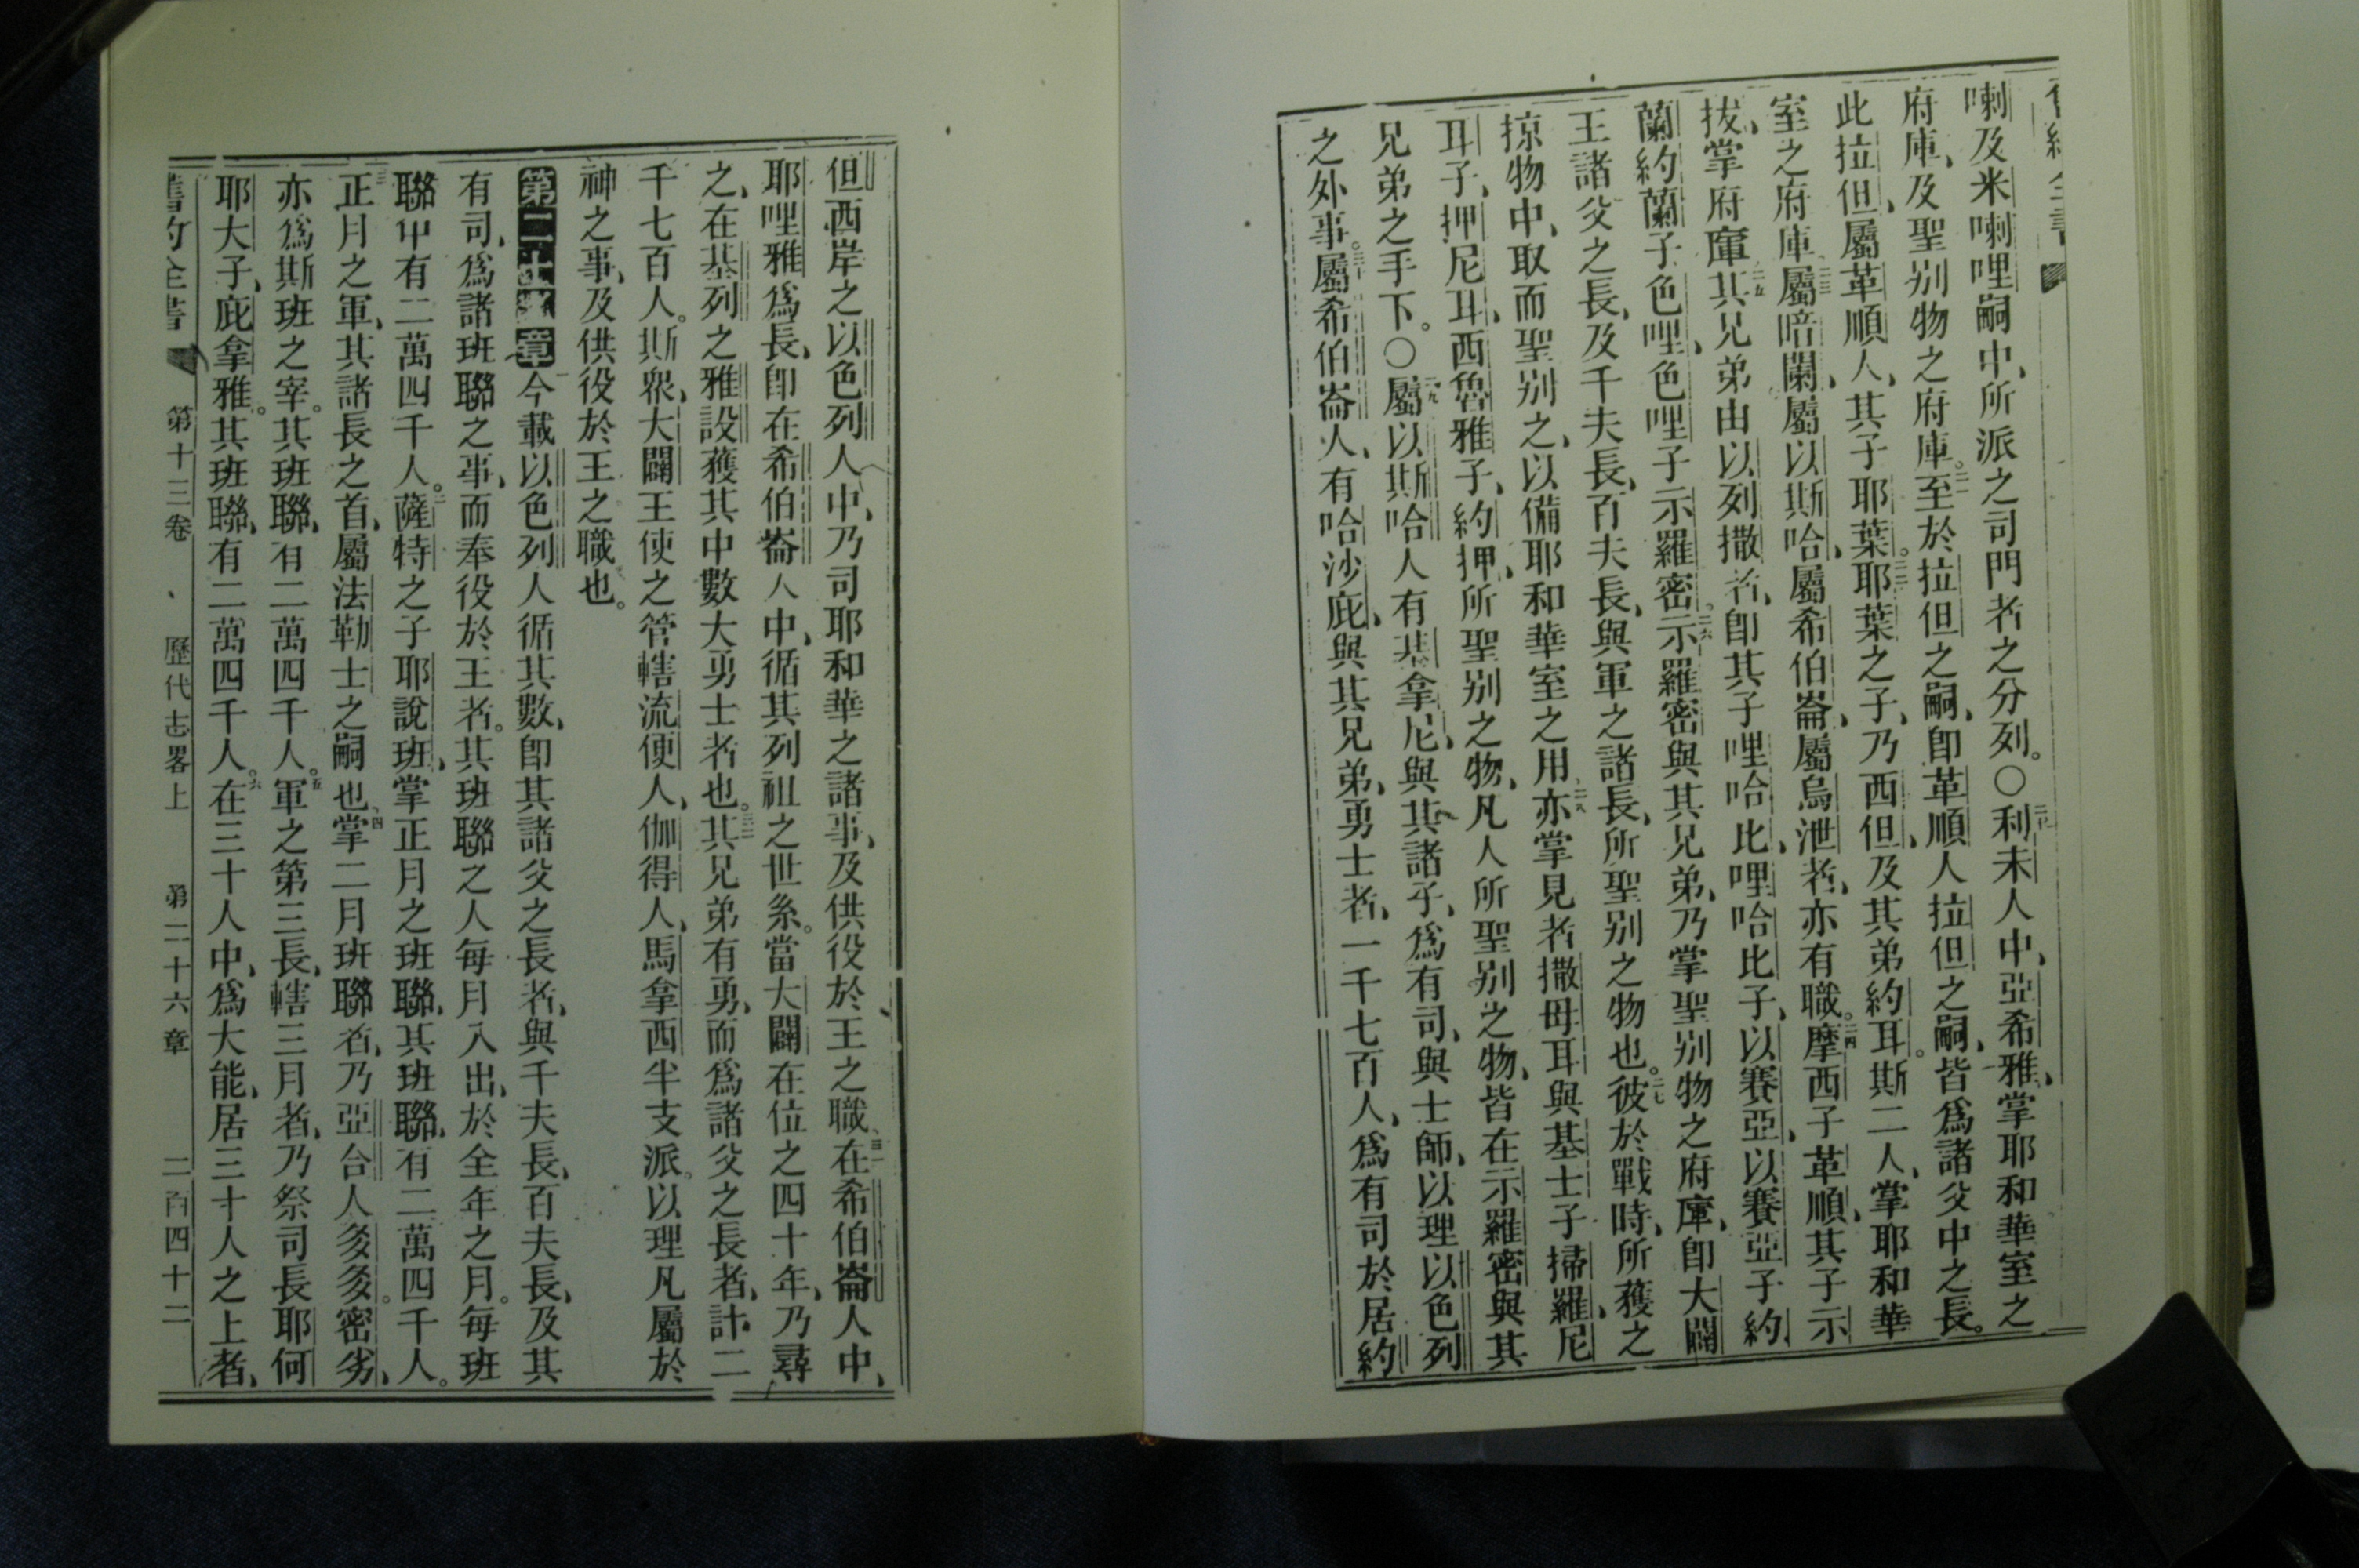 喇及米喇哩嗣中、所派之司門者之分列。○二十利未人中、亞希雅、掌耶和華室之
府庫、及聖别物之府庫。二一至於拉但之嗣、卽革順人拉但之嗣、皆爲諸父中之長。
此拉但、屬革順人、其子耶葉。二二耶葉之子、乃西但、及其弟約耳。斯二人、掌耶和華
室之府庫。二三屬暗闌、屬以斯哈、屬希伯崙、屬烏泄者、亦有職。二四摩西子革順、其子示
拔、掌府庫。二五其兄弟由以列撒者、卽其子哩哈比、哩哈比子、以賽亞、以賽亞子約
蘭、約蘭子色哩、色哩子示羅密。二六示羅密與其兄弟、乃掌聖别物之府庫、卽大闢
王諸父之長、及千夫長、百夫長、與軍之諸長、所聖别之物也。二七彼於戰時、所獲之
掠物中、取而聖别之、以備耶和華室之用。二八亦掌見者撒母耳與基士子掃羅、尼
耳子、押尼耳、西魯雅子、約押、所聖别之物、凡人所聖别之物、皆在示羅密與其
兄弟之手下。○二九屬以斯哈人有基拿尼、與其諸子、爲有司、與士師、以理以色列
之外事。三十屬希伯崙人、有哈沙庇、與其兄弟、勇士者、一千七百人、爲有司於居約
但西岸之以色列人中、乃司耶和華之諸事、及供役於王之職。三一在希伯崙人中、
耶哩雅爲長、卽在希伯崙人中、循其列祖之世系。當大闢在位之四十年、乃尋
之、在基列之雅設、獲其中數大勇士者也。三二其兄弟有勇、而爲諸父之長者、計二
千七百人。斯衆、大闢王使之管轄流便人、伽得人、馬拿西半支派。以理凡屬於
神之事、及供役於王之職也。
第二十七章一今載以色列人循其數、卽其諸父之長者、與千夫長、百夫長、及其
有司、爲諸班聯之事、而奉役於王者。其班聯之人每月入出、於全年之月。每班
聯中有二萬四千人。二薩特之子耶說班、掌正月之班聯、其班聯、有二萬四千人。
三正月之軍、其諸長之首、屬法勒士之嗣也、四掌二月班聯者、乃亞合人。密劣、
亦爲斯班之宰。其班聯、有二萬四千人。五軍之第三長、轄三月者、乃祭司長耶何
耶大子、庇拿雅。其班聯、有二萬四千人。六在三十人中、爲大能、居三十人之上者、
舊約全書 第十三卷 歷代志畧上 第二十六章 二百四十二